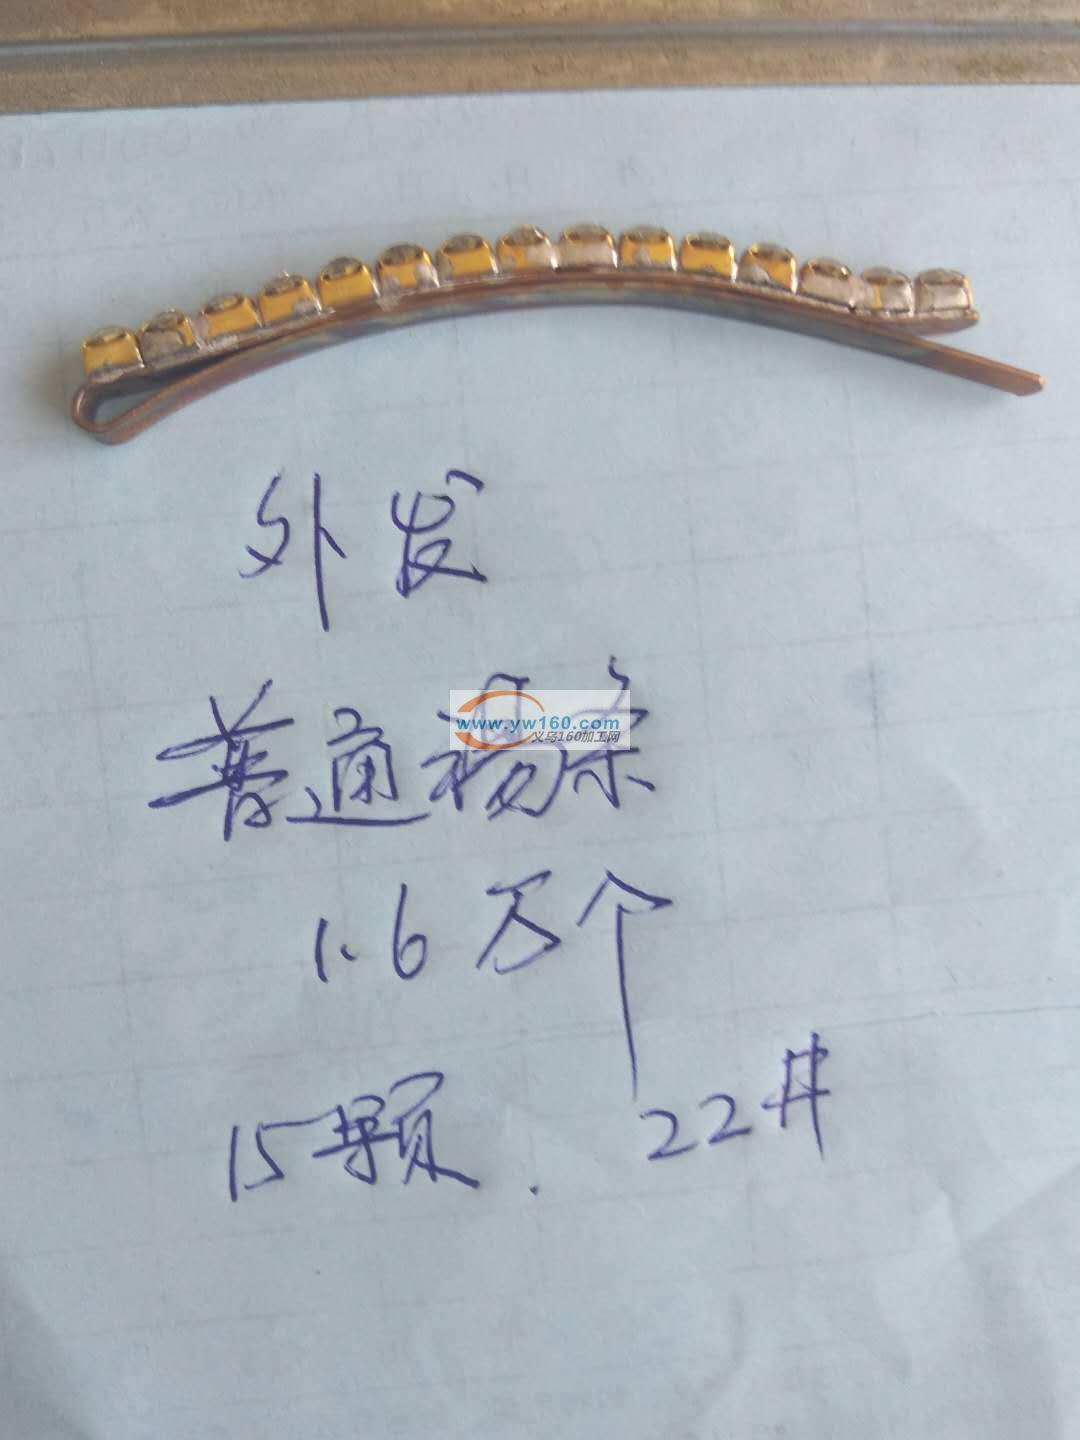 外发
普通焊条
www.yw160.com
义乌160加工网
1.6万个
15颗. 22井